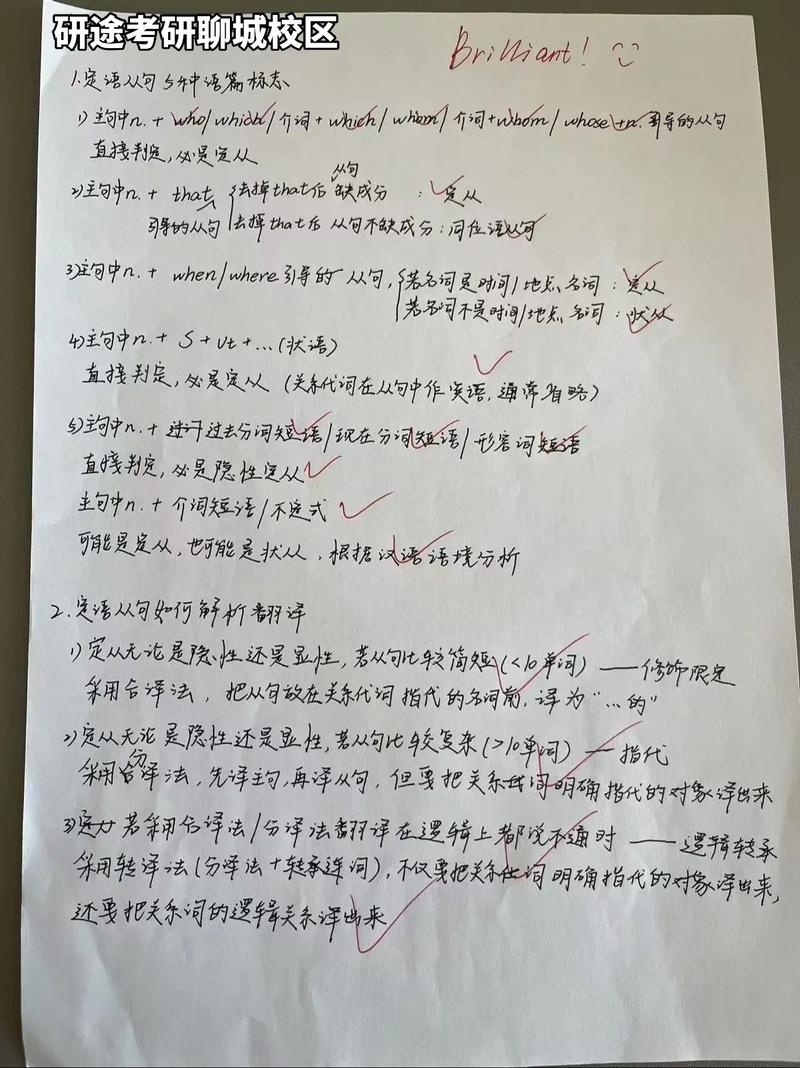 研途考研聊城校区
Brilliant!
1.定语从句5种语篇标志
1)主句中n.+who/which/介词+which/whom/介词+whom/whose+n.引导的从句
直接判定,必是定从
从句
2)主句中n.+that 去掉that后缺成分:定从
引导的从句 去掉that后从句不缺成分:同位语从句
3)主句中n.+when/where引导的从句,若名词是时间/地点名词:定从
若名词不是时间/地点名词:状从
4)主句中n.+S+Vt+...(状语)
直接判定,必是定从(关系代词在从句中作宾语,通常省略)
5)主句中n.+过去分词短语/现在分词短语/形容词短语
直接判定,必是隐性定从
主句中n.+介词短语/不定式
可能是定从,也可能是状从,根据汉语语境分析
2.定语从句如何解析翻译
1)定从无论是隐性还是显性,若从句比较简短(<10单词)——修饰限定
采用合译法,把从句放在关系代词指代的名词前,译为"...的"
2)定从无论是隐性还是显性,若从句比较复杂(>10单词)——指代
采用分译法,先译主句,再译从句,但要把关系代词明确指代的对象译出来
3)若采用合译法/分译法翻译在逻辑上都说不通时——逻辑转承
采用转译法(分译法+转承连词),不仅要把关系代词明确指代的对象译出来,
还要把关系词的逻辑关系译出来